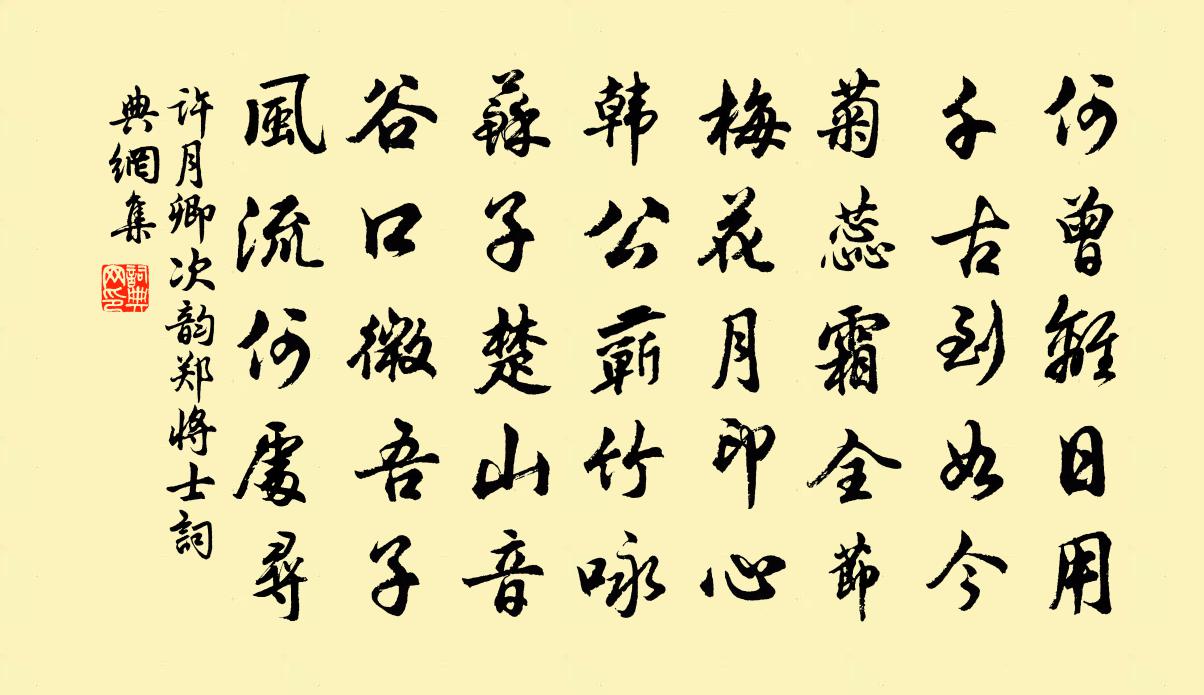 何曾離日用
千古到如今
菊蕊霜全節
梅花月印心
韩公蕲竹咏
蘇子楚山音
谷口微吾子
風流何處尋
许月卿次韵郑将士詞
典網集
詞典
网印